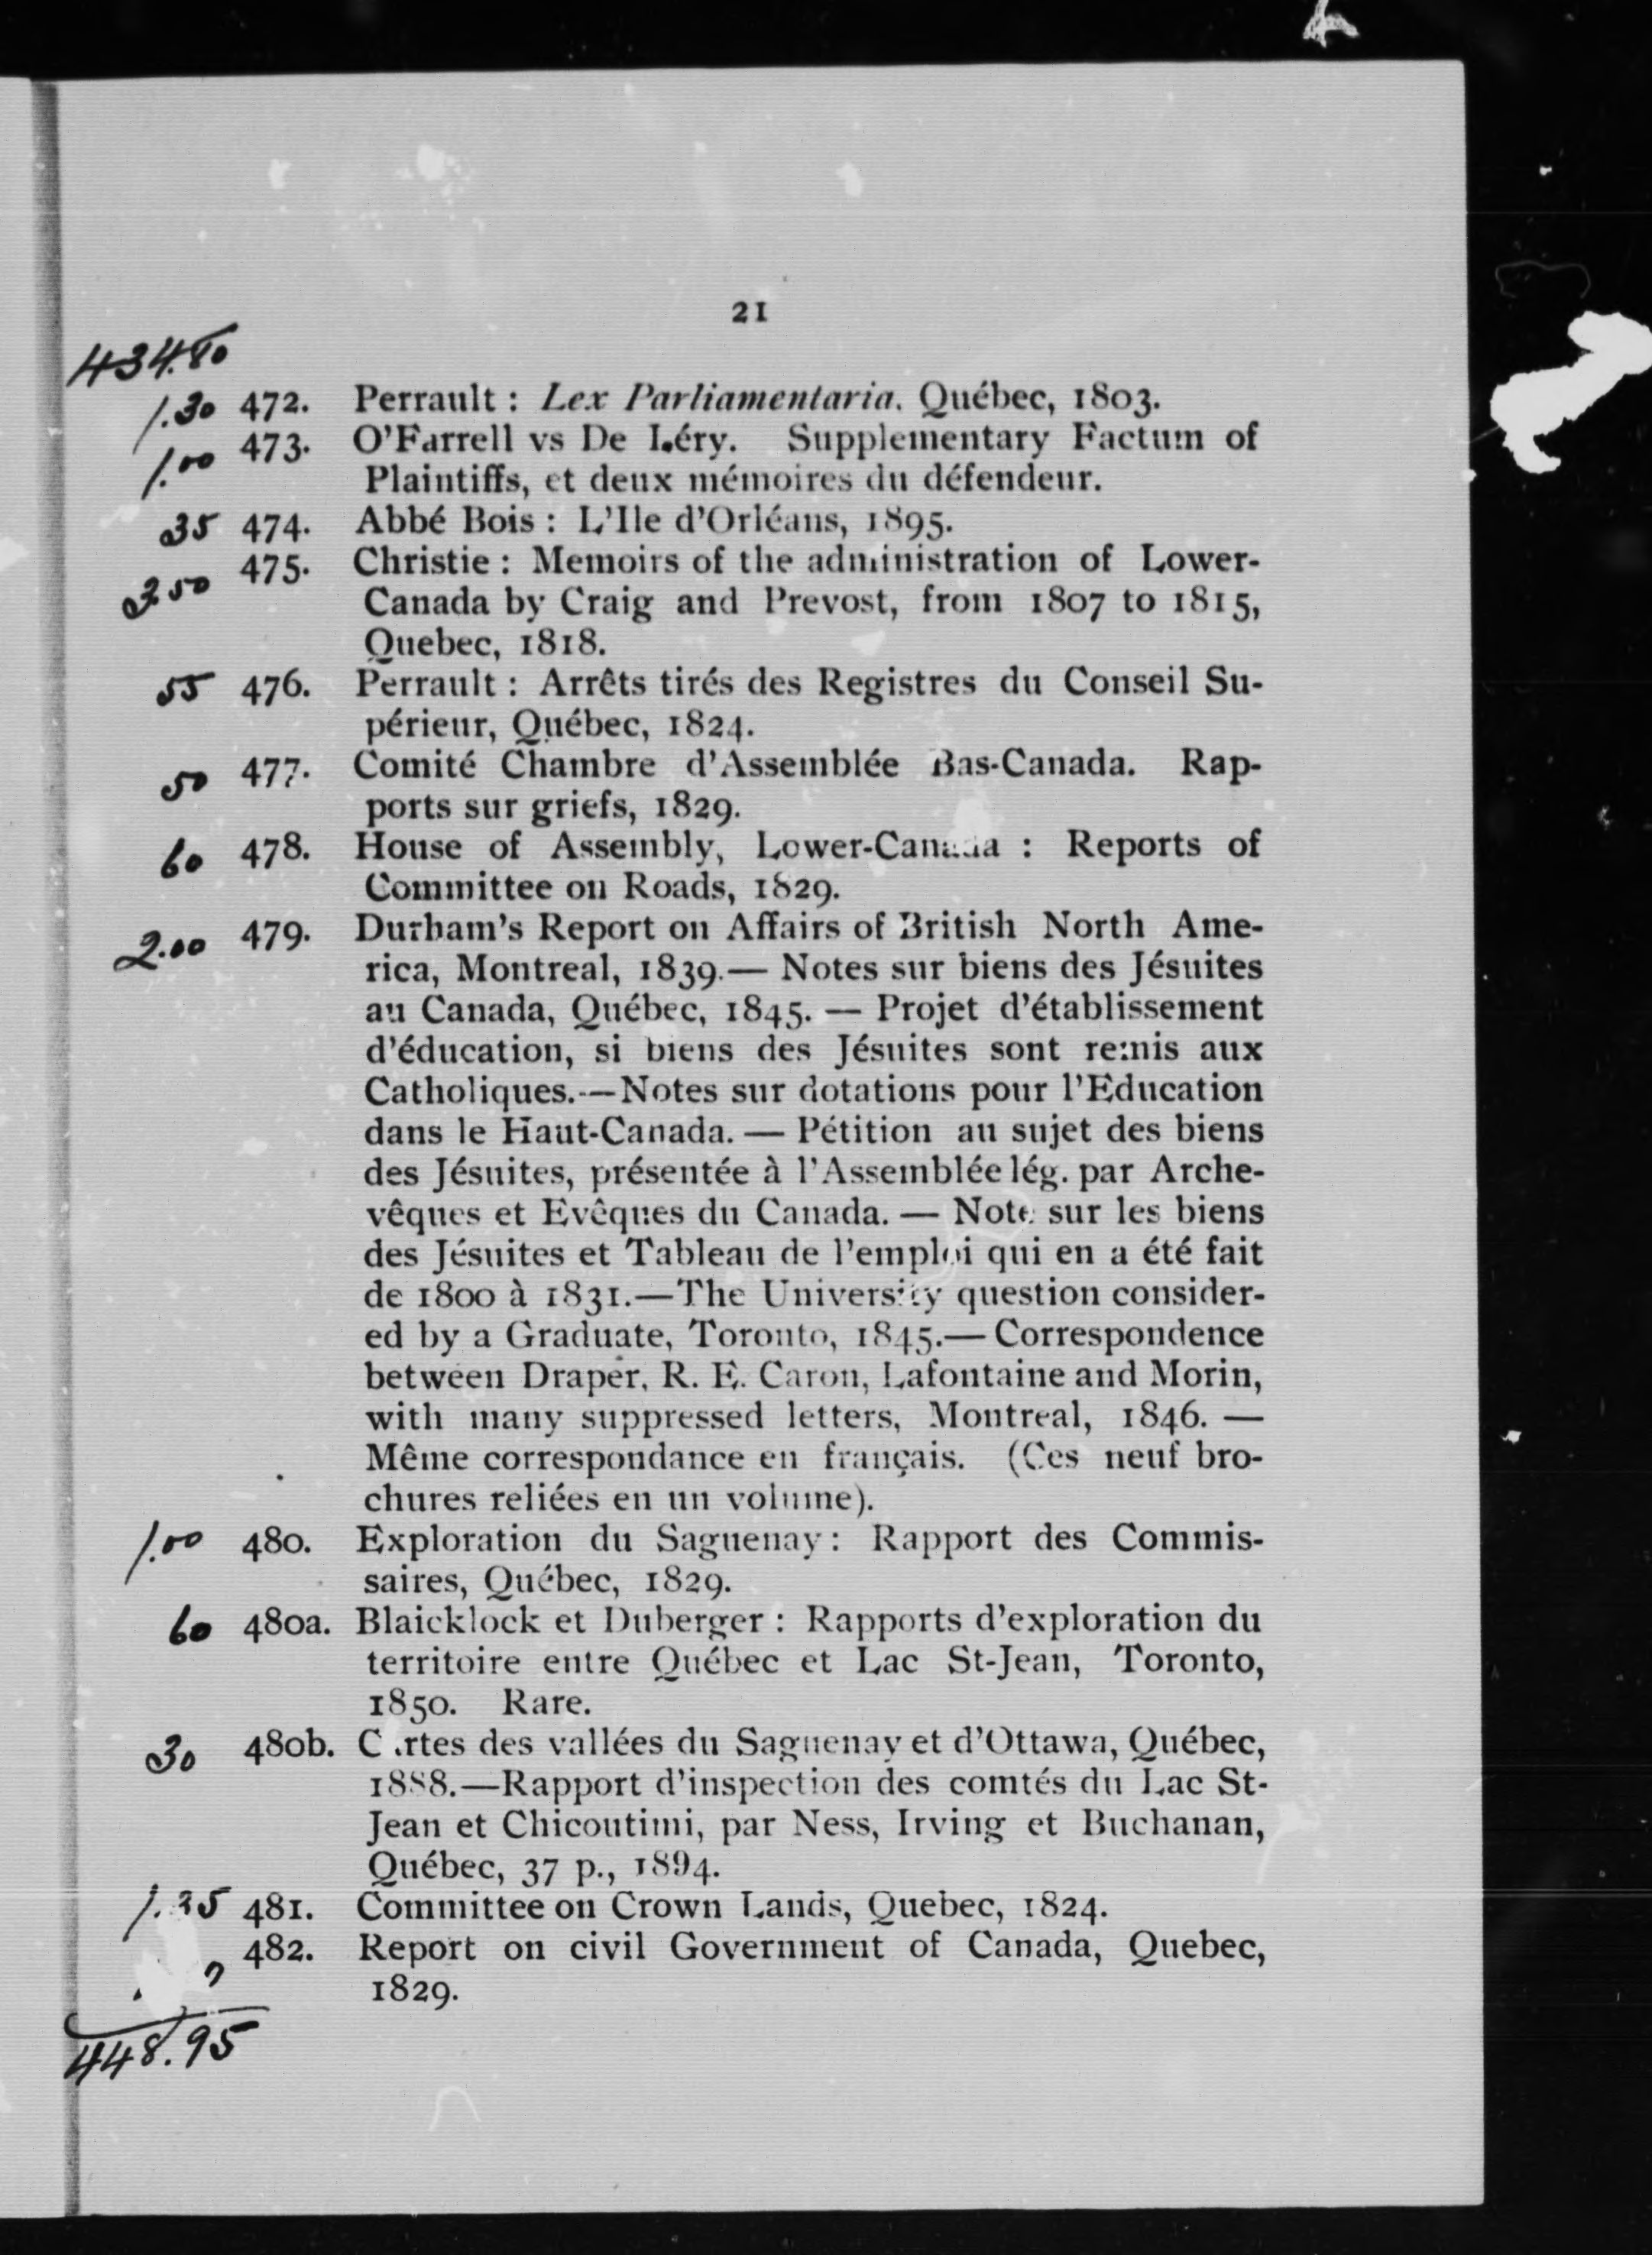 21
434.80
1.30 472. Perrault : Lex Parliamentaria. Québec, 1803.
1.00 473. O'Farrell vs De Léry. Supplementary Factum of
Plaintiffs, et deux mémoires du défendeur.
35 474. Abbé Bois : L'Ile d'Orléans, 1895.
475. Christie : Memoirs of the administration of Lower-
Canada by Craig and Prevost, from 1807 to 1815,
Quebec, 1818.
55 476. Perrault : Arrêts tirés des Registres du Conseil Su-
périeur, Québec, 1824.
50 477. Comité Chambre d'Assemblée Bas-Canada. Rap-
ports sur griefs, 1829.
60 478. House of Assembly, Lower-Canada : Reports of
Committee on Roads, 1829.
2.00 479. Durham's Report on Affairs of British North Ame-
rica, Montreal, 1839.— Notes sur biens des Jésuites
au Canada, Québec, 1845. — Projet d'établissement
d'éducation, si biens des Jésuites sont remis aux
Catholiques.—Notes sur dotations pour l'Education
dans le Haut-Canada. — Pétition au sujet des biens
des Jésuites, présentée à l'Assemblée lég. par Arche-
vêques et Evêques du Canada. — Note sur les biens
des Jésuites et Tableau de l'emploi qui en a été fait
de 1800 à 1831.—The University question consider-
ed by a Graduate, Toronto, 1845.— Correspondence
between Draper, R. E. Caron, Lafontaine and Morin,
with many suppressed letters, Montreal, 1846. —
Même correspondance en français. (Ces neuf bro-
chures reliées en un volume).
1.00 480. Exploration du Saguenay : Rapport des Commis-
saires, Québec, 1829.
60 480a. Blaicklock et Duberger : Rapports d'exploration du
territoire entre Québec et Lac St-Jean, Toronto,
1850. Rare.
30 480b. Cartes des vallées du Saguenay et d'Ottawa, Québec,
1888.—Rapport d'inspection des comtés du Lac St-
Jean et Chicoutimi, par Ness, Irving et Buchanan,
Québec, 37 p., 1894.
481. Committee on Crown Lands, Quebec, 1824.
482. Report on civil Government of Canada, Quebec,
1829.
448.95